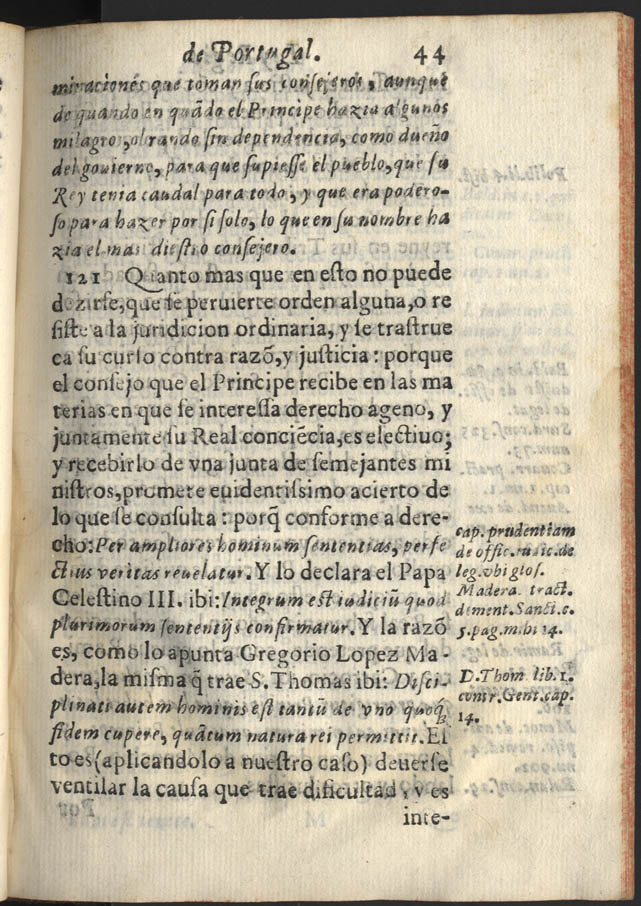 de Portugal. 44
minaciones que toman sus consejeros, aunque
de quando en quãdo el Principe hazia algunos
milagros, obrando sin dependencia, como dueño
del gouierno, para que supiesse el pueblo, que su
Rey tenia caudal para todo, y que era podero-
so para hazer por si solo, lo que en su nombre ha
zia el mas diestro consejero.
121 Quanto mas que en esto no puede
dezirse, que se peruierte orden alguna, o re
siste a la juridicion ordinaria, y se trastrue
ca su curso contra razõ, y justicia: porque
el consejo que el Principe recibe en las ma
terias en que se interessa derecho ageno, y
juntamente su Real conciẽcia, es electiuo;
y recebirlo de vna junta de semejantes mi
nistros, promete euidentissimo acierto de
lo que se consulta: porq̃ conforme a dere-
cho: Per ampliores hominum sententias, perfe
ctius veritas reuelatur. Y lo declara el Papa
Celestino III. ibi: Integrum est iudiciũ quod
plurimorum sententijs confirmatur. Y la razõ
es, como lo apunta Gregorio Lopez Ma-
dera, la misma q̃ trae S. Thomas ibi: Disci-
plinati autem hominis est tantũ de vno quoq́;
fidem cupere, quãtum natura rei permittit. Es
to es (aplicandolo a nuestro caso) deuerse
ventilar la causa que trae dificultad, y es
inte-
cap. prudentiam
de offic. iudic. de
leg. vbi glos.
Madera tract.
dement. Sanct. c.
5. pag. mihi 14.
D. Thom. lib. 1.
contr. Gent. cap.
14.